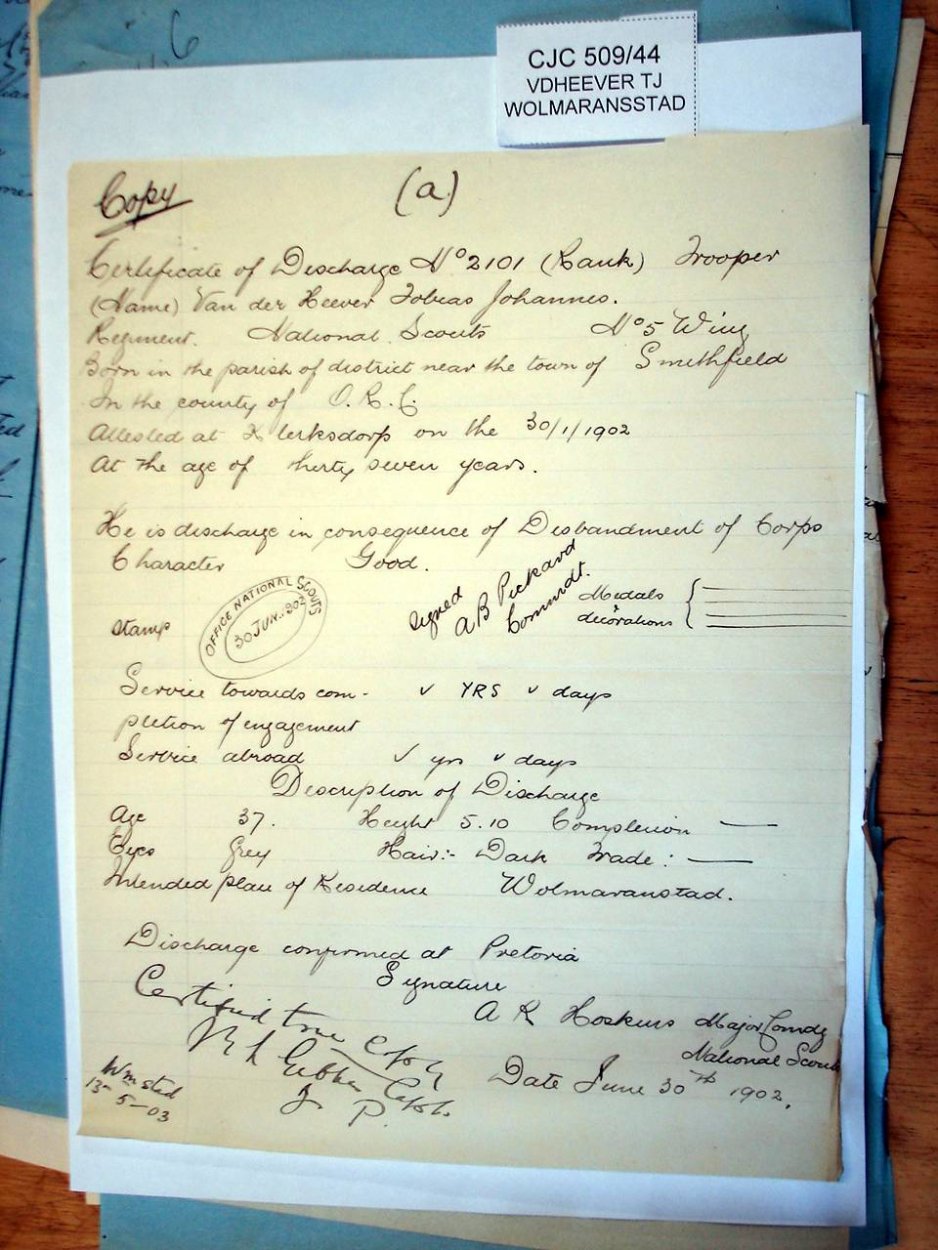 6
CJC 509/44
VDHEEVER TJ
WOLMARANSSTAD
Copy
(a)
Certificate of Discharge No 2101 (Rank) Trooper
(Name) Van der Heever Tobias Johannes.
Regiment. National Scouts No 5 Wing
Born in the parish of district near the town of Smithfield
In the county of O.R.C.
Attested at Klerksdorp on the 30/1/1902
At the age of thirty seven years.
He is discharge in consequence of Disbandment of Corps
Character Good.
Stamp
OFFICE NATIONAL SCOUTS
30 JUN. 1902
Signed
A B Pickard
Commdt.
Medals
&
decorations
Service towards com- v YRS v days
pletion of engagement
Service abroad v yrs v days
Description of Discharge
Age 37. Height 5.10 Complexion —
Eyes Grey Hair:- Dark Trade: —
Intended place of Residence Wolmaranstad.
Discharge confirmed at Pretoria
Signature
A R Hoskins Major Comdg
National Scouts
Date June 30th 1902.
Certified true Copy
Capt.
J P.
Wmstad
13-5-03